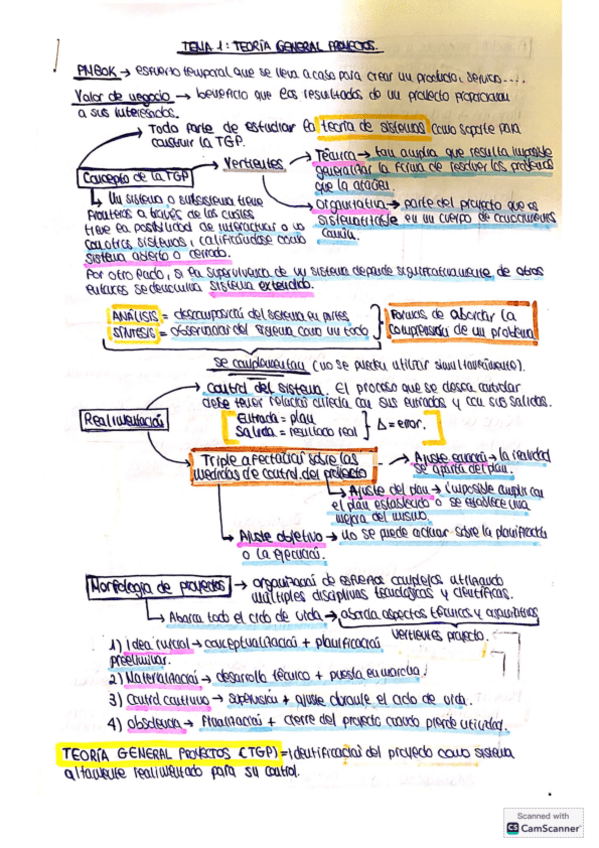 TEMA 1: TEORÍA GENERAL PROYECTOS.
PMBOK → esfuerzo temporal que se lleva a cabo para crear un producto, servicio....
Valor de negocio → beneficio que los resultados de un proyecto proporcionan
a sus interesados.
Toda parte de estudiar la teoría de sistemas como soporte para
construir la TGP.
Concepto de la TGP
Vertientes
Técnica → tan amplia que resulta imposible
generalizar la forma de resolver los problemas
que la atañen.
Organizativa → parte del proyecto que es
sistematizable en un cuerpo de conocimientos
común.
Un sistema o subsistema tiene
fronteras a través de las cuales
tiene la posibilidad de interactuar o no
con otros sistemas, calificándose como
sistema abierto o cerrado.
Por otro lado, si la supervivencia de un sistema depende significativamente de otros
entornos se denomina sistema extendido.
ANÁLISIS = descomposición del sistema en partes
SÍNTESIS = observación del sistema como un todo
Formas de abordar la
comprensión de un problema
se complementan (no se pueden utilizar simultáneamente).
Realimentación
Control del sistema. El proceso que se desea controlar
debe tener relación directa con sus entradas y con sus salidas.
Entrada = plan
Salida = resultado real
Δ = error.
Triple afectación sobre las
medidas de control del proyecto
Ajuste → la realidad
se aparta del plan.
Ajuste del plan → imposible cumplir con
el plan establecido o se establece una
mejora del mismo.
Ajuste objetivo → no se puede actuar sobre la planificación
o la ejecución.
Morfología de proyectos → organización de esfuerzos complejos utilizando
múltiples disciplinas tecnológicas y científicas.
Abarca todo el ciclo de vida → aborda aspectos técnicos y organizativos
vertientes proyecto.
1) Idea inicial → conceptualización + planificación
preeliminar.
2) Materialización → desarrollo técnico + puesta en marcha.
3) Control continuo → supervisión + ajuste durante el ciclo de vida.
4) Obsolencia → finalización + cierre del proyecto cuando pierde utilidad.
TEORÍA GENERAL PROYECTOS (TGP) = identificación del proyecto como sistema
altamente realimentado para su control.
Scanned with
CS CamScanner